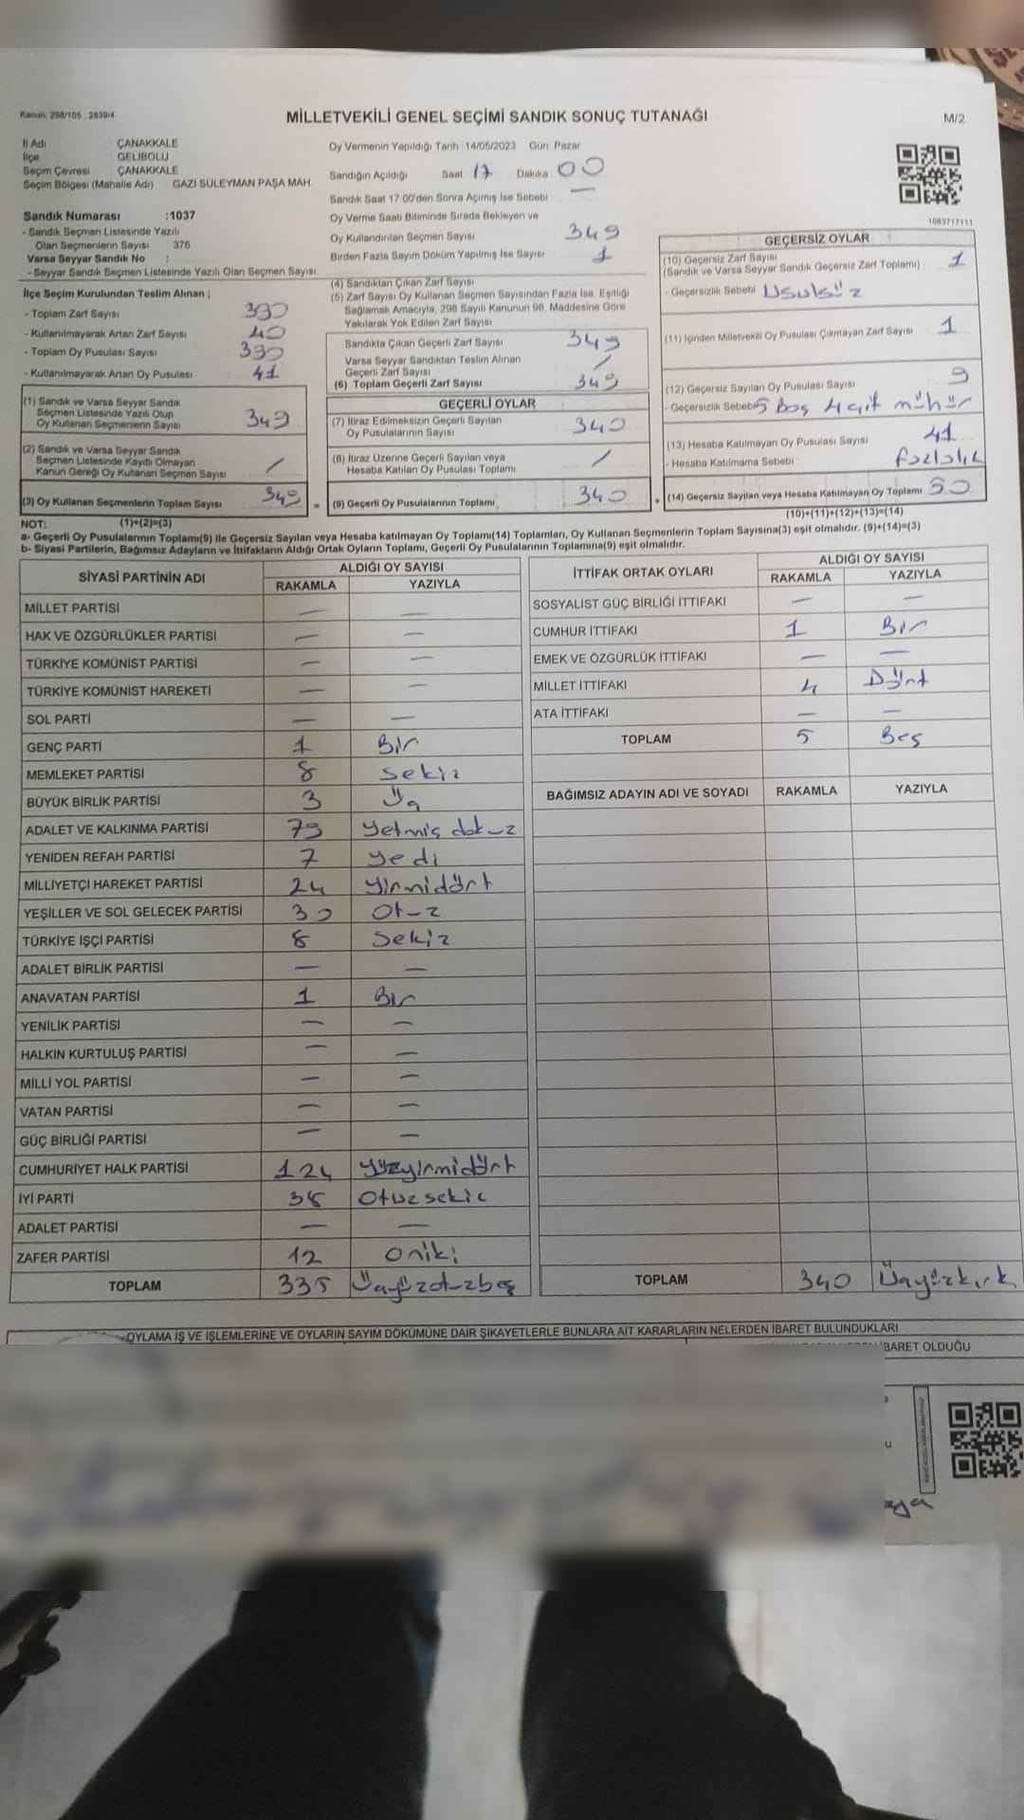 Kanun, 298/105 , 2839/4
MİLLETVEKİLİ GENEL SEÇİMİ SANDIK SONUÇ TUTANAĞI
M/2
İl Adı ÇANAKKALE
İlçe GELİBOLU
Seçim Çevresi ÇANAKKALE
Seçim Bölgesi (Mahalle Adı) GAZİ SÜLEYMAN PAŞA MAH.
Oy Vermenin Yapıldığı Tarih 14/05/2023 Gün Pazar
Sandığın Açıldığı Saat 17 Dakika 00
Sandık Saat 17.00'den Sonra Açılmış İse Sebebi —
Sandık Numarası :1037
- Sandık Seçmen Listesinde Yazılı
Olan Seçmenlerin Sayısı 376
Varsa Seyyar Sandık No :
- Seyyar Sandık Seçmen Listesinde Yazılı Olan Seçmen Sayısı
Oy Verme Saati Bitiminde Sırada Bekleyen ve
Oy Kullandırılan Seçmen Sayısı 349
Birden Fazla Sayım Döküm Yapılmış İse Sayısı 1
1083717111
İlçe Seçim Kurulundan Teslim Alınan ;
- Toplam Zarf Sayısı 390
- Kullanılmayarak Artan Zarf Sayısı 40
- Toplam Oy Pusulası Sayısı 390
- Kullanılmayarak Artan Oy Pusulası 41
(1) Sandık ve Varsa Seyyar Sandık
Seçmen Listesinde Yazılı Olup
Oy Kullanan Seçmenlerin Sayısı 349
(2) Sandık ve Varsa Seyyar Sandık
Seçmen Listesinde Kayıtlı Olmayan
Kanun Gereği Oy Kullanan Seçmen Sayısı /
(3) Oy Kullanan Seçmenlerin Toplam Sayısı 349
(4) Sandıktan Çıkan Zarf Sayısı
(5) Zarf Sayısı Oy Kullanan Seçmen Sayısından Fazla İse, Eşitliği
Sağlamak Amacıyla, 298 Sayılı Kanunun 98. Maddesine Göre
Yakılarak Yok Edilen Zarf Sayısı
Sandıkta Çıkan Geçerli Zarf Sayısı 349
Varsa Seyyar Sandıktan Teslim Alınan
Geçerli Zarf Sayısı /
(6) Toplam Geçerli Zarf Sayısı 349
GEÇERLİ OYLAR
(7) İtiraz Edilmeksizin Geçerli Sayılan
Oy Pusulalarının Sayısı 340
(8) İtiraz Üzerine Geçerli Sayılan veya
Hesaba Katılan Oy Pusulası Toplamı /
= (9) Geçerli Oy Pusulalarının Toplamı 340
GEÇERSİZ OYLAR
(10) Geçersiz Zarf Sayısı 1
(Sandık ve Varsa Seyyar Sandık Geçersiz Zarf Toplamı)
- Geçersizlik Sebebi Usulsüz
(11) İçinden Milletvekili Oy Pusulası Çıkmayan Zarf Sayısı 1
(12) Geçersiz Sayılan Oy Pusulası Sayısı 9
- Geçersizlik Sebebi 5 Boş 4 çift mühür
(13) Hesaba Katılmayan Oy Pusulası Sayısı 41
- Hesaba Katılmama Sebebi fazlalık
+ (14) Geçersiz Sayılan veya Hesaba Katılmayan Oy Toplamı 50
NOT: (1)+(2)=(3)
(10)+(11)+(12)+(13)=(14)
a- Geçerli Oy Pusulalarının Toplamı(9) ile Geçersiz Sayılan veya Hesaba katılmayan Oy Toplamı(14) Toplamları, Oy Kullanan Seçmenlerin Toplam Sayısına(3) eşit olmalıdır. (9)+(14)=(3)
b- Siyasi Partilerin, Bağımsız Adayların ve İttifakların Aldığı Ortak Oyların Toplamı, Geçerli Oy Pusulalarının Toplamına(9) eşit olmalıdır.
SİYASİ PARTİNİN ADI ALDIĞI OY SAYISI
RAKAMLA YAZIYLA
MİLLET PARTİSİ — —
HAK VE ÖZGÜRLÜKLER PARTİSİ — —
TÜRKİYE KOMÜNİST PARTİSİ — —
TÜRKİYE KOMÜNİST HAREKETİ — —
SOL PARTİ — —
GENÇ PARTİ 1 Bir
MEMLEKET PARTİSİ 8 sekiz
BÜYÜK BİRLİK PARTİSİ 3 Üç
ADALET VE KALKINMA PARTİSİ 79 yetmiş dokuz
YENİDEN REFAH PARTİSİ 7 yedi
MİLLİYETÇİ HAREKET PARTİSİ 24 yirmidört
YEŞİLLER VE SOL GELECEK PARTİSİ 30 Otuz
TÜRKİYE İŞÇİ PARTİSİ 8 sekiz
ADALET BİRLİK PARTİSİ — —
ANAVATAN PARTİSİ 1 Bir
YENİLİK PARTİSİ — —
HALKIN KURTULUŞ PARTİSİ — —
MİLLİ YOL PARTİSİ — —
VATAN PARTİSİ — —
GÜÇ BİRLİĞİ PARTİSİ — —
CUMHURİYET HALK PARTİSİ 124 yüzyirmidört
İYİ PARTİ 38 Otuzsekiz
ADALET PARTİSİ — —
ZAFER PARTİSİ 12 oniki
TOPLAM 335 Üçyüzotuzbeş
İTTİFAK ORTAK OYLARI ALDIĞI OY SAYISI
RAKAMLA YAZIYLA
SOSYALİST GÜÇ BİRLİĞİ İTTİFAKI — —
CUMHUR İTTİFAKI 1 Bir
EMEK VE ÖZGÜRLÜK İTTİFAKI — —
MİLLET İTTİFAKI 4 Dört
ATA İTTİFAKI — —
TOPLAM 5 Beş
BAĞIMSIZ ADAYIN ADI VE SOYADI RAKAMLA YAZIYLA
TOPLAM 340 Üçyüzkırk
OYLAMA İŞ VE İŞLEMLERİNE VE OYLARIN SAYIM DÖKÜMÜNE DAİR ŞİKAYETLERLE BUNLARA AİT KARARLARIN NELERDEN İBARET BULUNDUKLARI
İBARET OLDUĞU